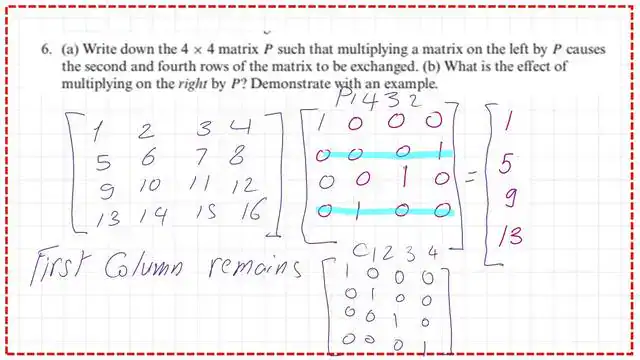 6. (a) Write down the 4 × 4 matrix P such that multiplying a matrix on the left by P causes
the second and fourth rows of the matrix to be exchanged. (b) What is the effect of
multiplying on the right by P? Demonstrate with an example.
P1 4 3 2
1 2 3 4 1 0 0 0 1
5 6 7 8 0 0 0 1 5
9 10 11 12 0 0 1 0 = 9
13 14 15 16 0 1 0 0 13
C1 2 3 4
First Column remains 1 0 0 0
0 1 0 0
0 0 1 0
0 0 0 1